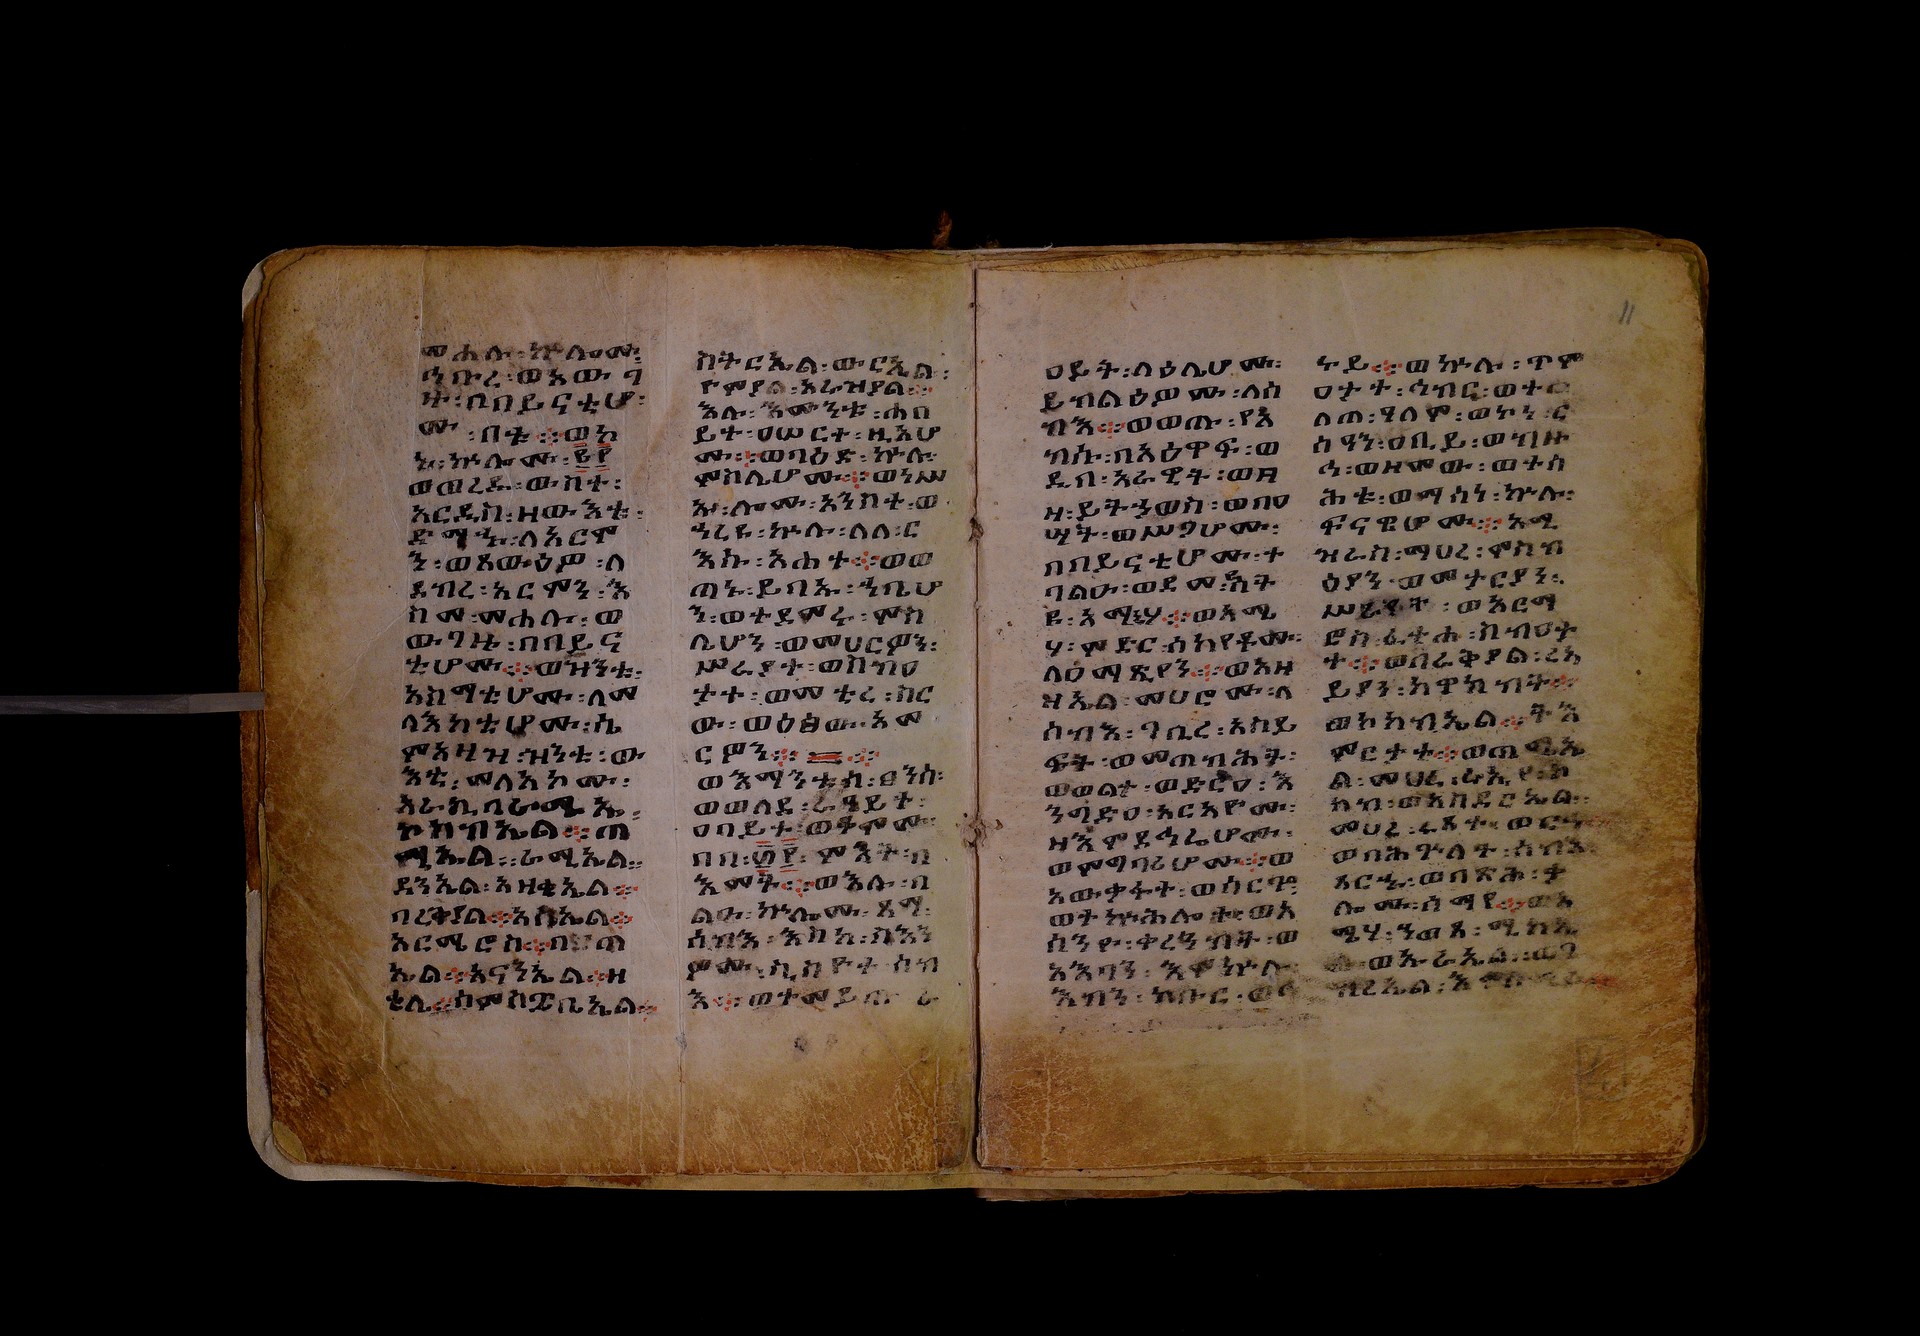 መሐሉ፡ኵሎሙ፡
ኅቡረ፡ወአውገ
ዙ፡በበይናቲሆ
ሙ፡ቦቱ።ወኮ
ኑ፡ኵሎሙ፡፪፻
ወወረዱ፡ውስተ፡
አርዲስ፡ዘውእቱ፡
ድማኁ፡ለአርሞ
ን፡ወጸውዕዎ፡ለ
ደብረ፡አርሞን፡እ
ስመ፡መሐሉ፡ወ
ውገዙ፡በበይና
ቲሆሙ።ወዝንቱ፡
አስማቲሆሙ፡ለመ
ላእክቲሆሙ፡ሰ
ምአዛዝ፡ዝንቱ፡ው
እቱ፡መልአኮሙ፡
አራኪባራሜኤ፡
ኮከብኤል።ጠ
ሚኤል።ራሚኤል።
ዳንኤል፡አዘቄኤል።
ባረቅያል።አስኤል።
አርሜሮስ።
ኤል።አናንኤል።ዘ
ቂሌ።ሰምሳጴቤኤል።
ሰትርኤል፡ውርኤል፡
ዮምያል፡አራዝያል።
እሉ፡እሙንቱ፡ሐበ
ይተ፡ዐሠርተ፡ዚአሆ
ሙ።ወባዕድ፡ኵሉ፡
ምስሌሆሙ።ወነሥ
ኡ፡ሎሙ፡አንስተ፡ወ
ኀረዩ፡ኵሉ፡ለለ፡ር
እሱ፡አሐተ።ወወ
ጠኑ፡ይባኡ፡ኀቤሆ
ን፡ወተደመሩ፡ምስ
ሌሆን፡ወመሀርዎን፡
ሥራያተ፡ወስብዐ
ታተ፡ወመቲረ፡ሥር
ው፡ወዕፀው፡አመ
ርዎን።
ወእማንቱሰ፡ፀንሳ፡
ወወለደ፡ረዓይተ፡
ዐባይተ፡ወቆሞሙ፡
በበ፡፴፻፡ምእት፡በ
እመት።ወእሉ፡በ
ልዑ፡ኵሎሙ፡ጻማ፡
ሰብእ፡እስከ፡ስእን
ዎሙ፡ሴስዮተ፡ሰብ
እ።ወተመይጡ፡ረ
11
ዐይት፡ላዕሌሆሙ፡
ይብልዕዎሙ፡ለሰ
ብእ።ወወጡ፡የአ
ብሱ፡በአዕዋፍ፡ወ
ዲበ፡አራዊት፡ወዘ
ዘ፡ይትኀወስ፡ወበዐ
ሣት፡ወሥጋሆሙ፡
በበይናቲሆሙ፡ተ
ባልዑ፡ወደመ፡ሰት
ዩ፡እማኔሃ።ወአሜ
ሃ፡ምድር፡ሰከየቶሙ፡
ለዐማጺያን።ወአዛ
ዝኤል፡መሀሮሙ፡ለ
ሰብእ፡ገቢረ፡አስይ
ፍት፡ወመጣብሕት፡
ወወልታ፡ወድርዐ፡እ
ንግድዐ፡አርአዮሙ፡
ዘእምደኅሬሆሙ፡
ወምግባሪሆሙ።ወ
አውቃፋተ፡ወሰርጐ፡
ወተኵሕሎተ፡ወአ
ሰንዮ፡ቀራንብት፡ወ
እእባን፡እምኵሉ፡
እብን፡ክቡር፡ወኅ
ሩይ።ወኵሉ፡ጥም
ዐታተ፡ኅብር፡ወተው
ላጠ፡ዓለም፡ወኮነ፡ር
ስዓን፡ዐቢይ፡ወብዙ
ኅ፡ወዘመው፡ወተስ
ሕቱ፡ወማሰነ፡ኵሉ፡
ፍናዊሆሙ።አሜ
ዝራስ፡ማሀረ፡ሞሰብ
ዕያን፡ወመታርያነ፡
ሥረዋት፡ወአርማ
ሮስ፡ፈቲሐ፡ስብዐታ
ት።ወበራቅያል፡ረኣ
ይያን፡ከዋክብት።
ወኮከብኤል።ትእ
ምርታተ።ወጠሚኤ
ል፡መሀረ፡ራእየ፡ኮ
ከብ፡ወአስደርኤል፡
መሀረ፡ሩጸተ፡ወርኅ
ወበሕጕለት፡ሰብእ
ጸርኁ፡ወበጽሐ፡ቃ
ሎሙ፡ሰማየ።ወአ
ሜሃ፡ሚካኤ
ል፡ወኡራኤል፡ወገ
ብረኤል፡